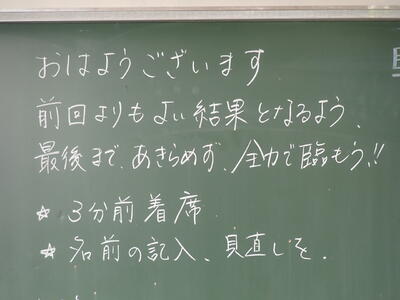 おはようございます
前回よりもよい結果となるよう、
最後まで、あきらめず、全力で臨もう!!
☆ 3分前着席
☆ 名前の記入、見直しを.